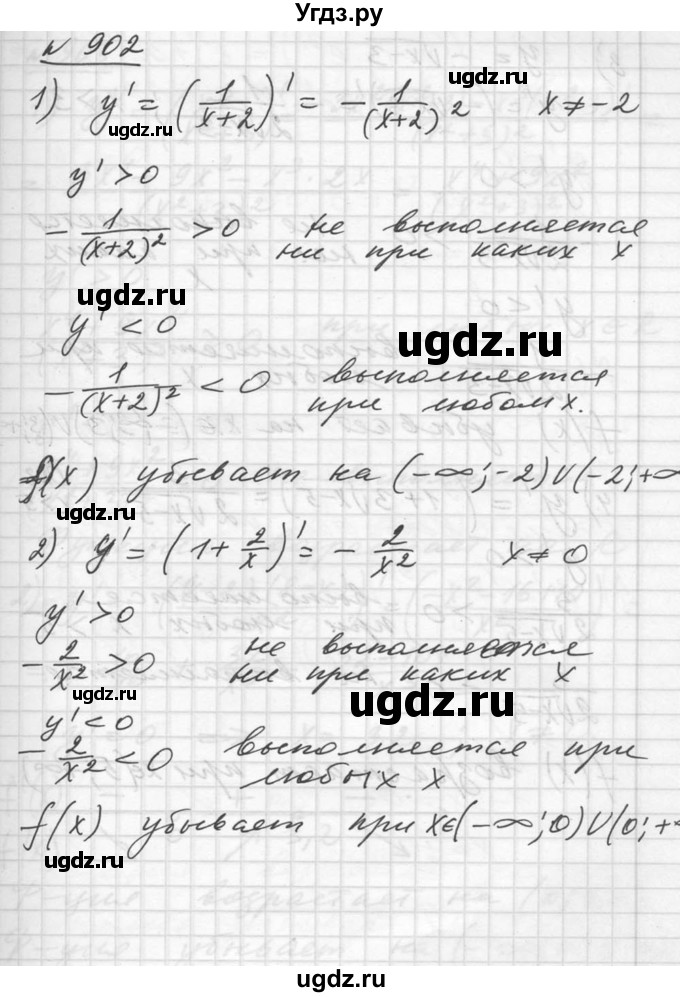 Угдз.ру
№ 902
1) y' = (1/(x+2))' = - 1/(x+2)² x ≠ -2
ugdz.ru ugdz.ru
y' > 0
- 1/(x+2)² > 0 не выполняется
ни при каких x
ugdz.ru
y' < 0
ugdz.ru
- 1/(x+2)² < 0 выполняется
при любом x.
f(x) убывает на (-∞; -2) ∪ (-2; +∞
ugdz.ru
2) y' = (1 + 2/x)' = - 2/x² x ≠ 0
y' > 0
- 2/x² > 0 не выполняется
ни при каких x
ugdz.ru ugdz.ru
y' < 0
- 2/x² < 0 выполняется при
любых x
f(x) убывает при x∈(-∞; 0) ∪ (0; +
ugdz.ru ugdz.ru
ugdz.ru
ugdz.ru